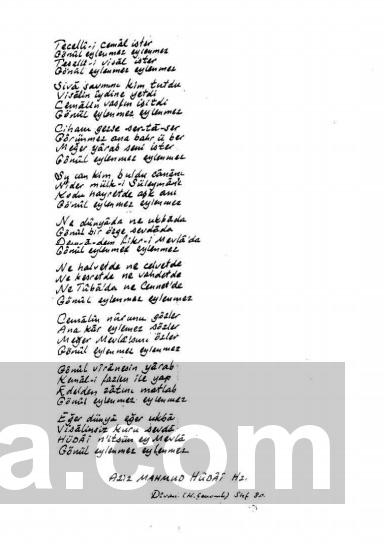 Tecellî-i cemâl ister
Gönül eylenmez eylenmez
Tesellî-i visâl ister
Gönül eylenmez eylenmez
Sivâ savmını kim tuttu
Visâlin îydine yetdi
Cemâlin vasfın işitdi
Gönül eylenmez eylenmez
Cihanı gezse ser-tâ-ser
Görünmez ana bahr ü ber
Meğer yârab seni ister
Gönül eylenmez eylenmez
Şu can kim buldu cânânı
Nider mülk-i Süleymân'ı
Kodu hayretde aşk anı
Gönül eylenmez eylenmez
Ne dünyâda ne ukbâda
Gönül bir özge sevdâda
Demâ-dem fikr-i Mevlâ'da
Gönül eylenmez eylenmez
Ne halvetde ne celvetde
Ne kesretde ne vahdetde
Ne Tûbâ'da ne Cennet'de
Gönül eylenmez eylenmez
Cemâlin nûrunu gözler
Ana kâr eylemez sözler
Meğer Mevlâsını özler
Gönül eylenmez eylenmez
Gönül vîrânesin yârab
Kemâl-i fazlın ile yap
Edelden zâtını matlab
Gönül eylenmez eylenmez
Eğer dünyâ eğer ukbâ
Visâlinsiz kuru sevdâ
HÜDÂÎ n'itsün ey Mevlâ
Gönül eylenmez eylenmez
AZİZ MAHMUD HÜDÂÎ Hz.
Dîvan Shf 80.
a.com